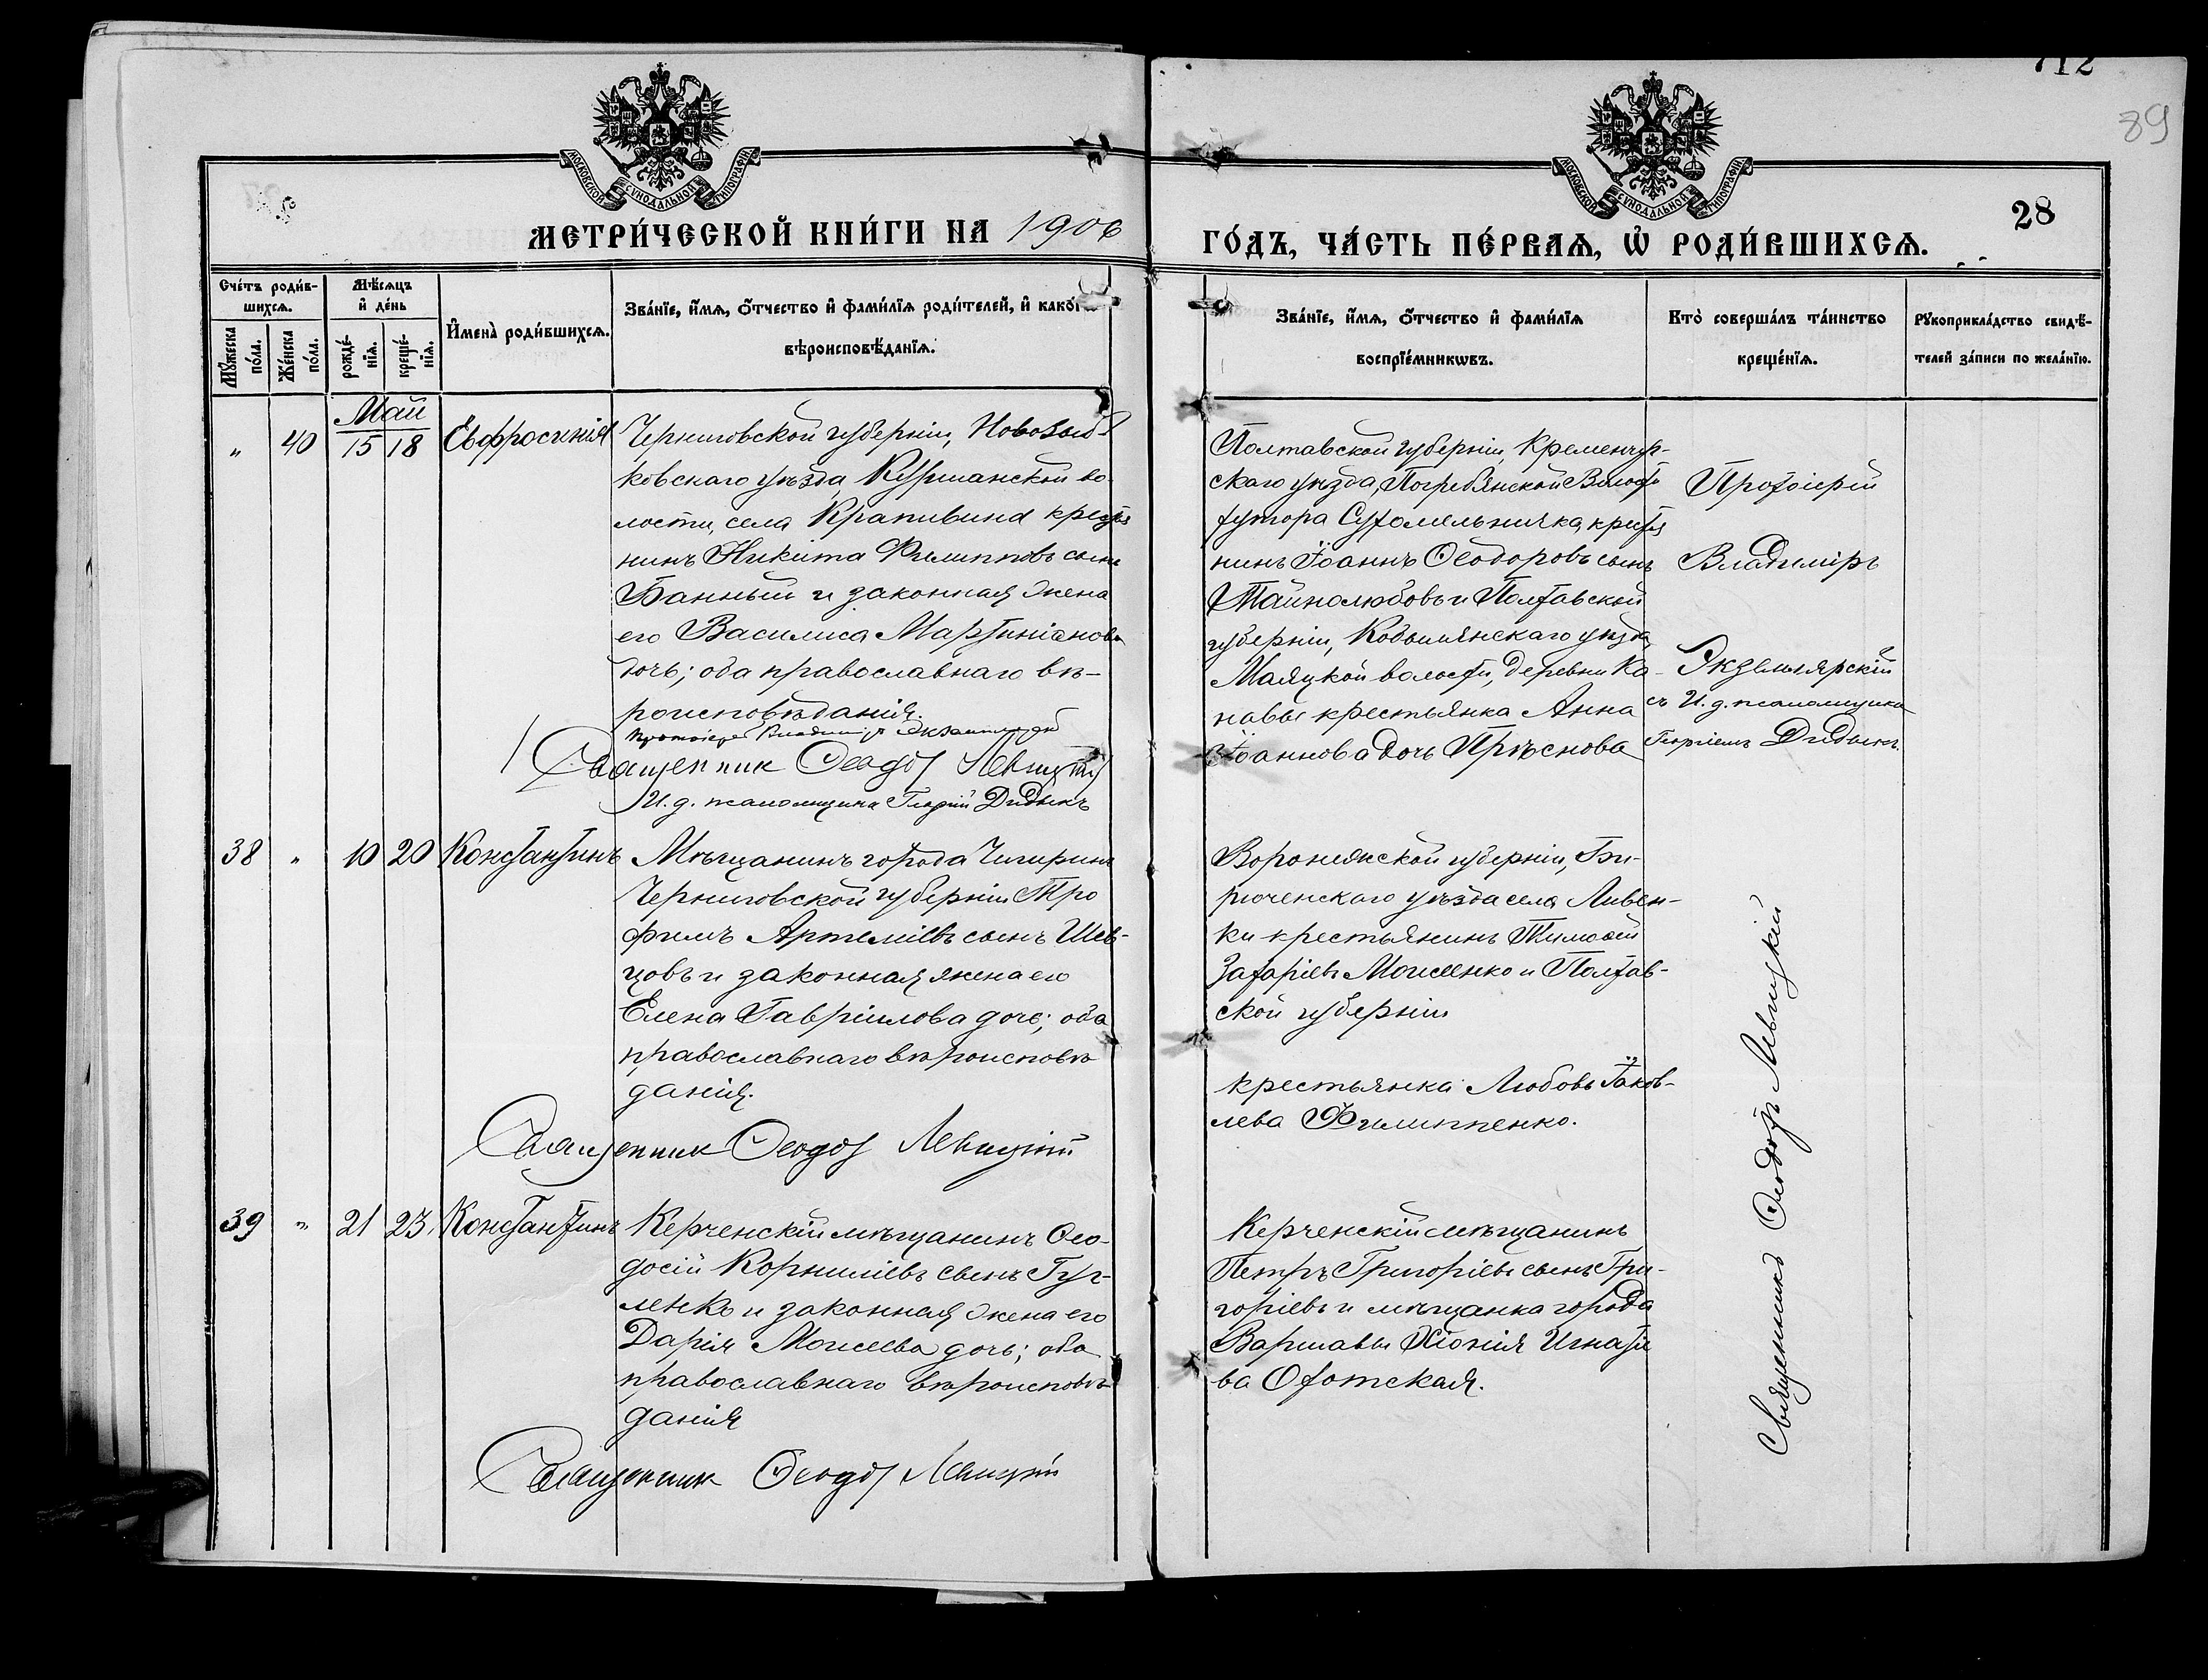 712
89
МОСКОВСКОЙ СѴНОДАЛЬНОЙ ТИПОГРАФІИ
МОСКОВСКОЙ СѴНОДАЛЬНОЙ ТИПОГРАФІИ
МЕТРИ́ЧЕСКОЙ КНИ́ГИ НА 1906
ГО́ДЪ, ЧА́СТЬ ПЕ́РВАѦ, Ѡ҆ РОДИ́ВШИХСѦ.
28
Сче́тъ роди́в-
шихсѧ.
Мꙋ́жеска по́ла.
Же́нска по́ла.
Мѣ́сѧцъ
и҆ де́нь
рожде́-
нїѧ.
креще́-
нїѧ.
И҆мена̀ роди́вшихсѧ.
Зва́нїе, и҆́мѧ, ѻ҆́тчество и҆ фами́лїѧ роди́телей, и҆ како́гѡ
вѣроисповѣ́данїѧ.
Зва́нїе, и҆́мѧ, ѻ҆́тчество и҆ фами́лїѧ
воспрїе́мникѡвъ.
Кто̀ соверша́лъ та́инство
креще́нїѧ.
Рꙋкоприкла́дство свидѣ́-
телей за́писи по жела́нїю.
Май
" 40 15 18 Евфросинія
Черниговской губерніи, Новозыб-
ковскаго уѣзда, Куршанской во-
лости, села Крапивина крестья
нинъ Никита Филипповъ сынъ
Банный и законная жена
его Василиса Мартиніанова
дочь; оба православнаго вѣ-
роисповѣданія.
Протоіерей Владиміръ Экземплярскій
Священник Ѳеодоръ Левицкій
И. д. псаломщика Георгій Дидыкъ
Полтавской губерніи, Кременчуг-
скаго уѣзда, Погребянской Волости
хутора Сухомельничка, крестья
нинъ Іоаннъ Ѳеодоровъ сынъ
Тайнолюбовъ и Полтавской
губерніи, Кобылянскаго уѣзда,
Маяцкой волости, деревни Ка-
навы крестьянка Анна
Іоаннова дочь Прѣснова
Протоіерей
Владиміръ
Экземплярскій
съ И. д. псаломщика
Георгіемъ Дидыкъ.
38 " 10 20 Константинъ
Мѣщанинъ города Чигирина
Черниговской губерніи Тро
фимъ Артеміевъ сынъ Шев-
цовъ и законная жена его
Елена Гавріилова дочь; оба
православнаго вѣроисповѣ
данія.
Священник Ѳеодоръ Левицкій
Воронежской губерніи, Би-
рюченскаго уѣзда села Ливен-
ки крестьянинъ Тимоѳей
Захаріевъ Моисеенко и Полтав-
ской губерніи
крестьянка Любовь Іаков-
лева Филиппенко.
39 " 21 23 Константинъ
Керченскій мѣщанинъ Ѳео-
досій Корниліевъ сынъ Гуг-
ленко и законная жена его
Дарія Моисеева дочь; оба
православнаго вѣроисповѣ
данія
Священник Ѳеодоръ Левицкій
Керченскій мѣщанинъ
Петръ Григоріевъ сынъ Гри-
горіевъ и мѣщанка города
Варшавы Хіонія Игнатіе
ва Охотская.
Священникъ Ѳеодоръ Левицкій